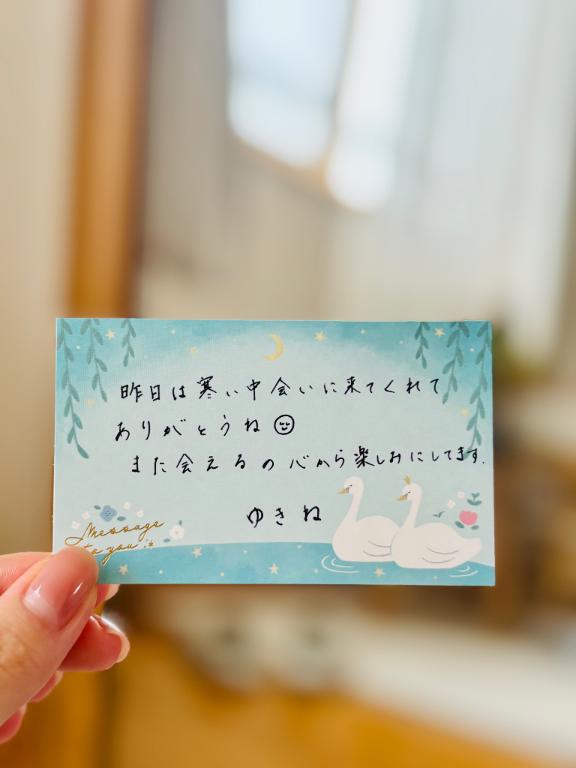 昨日は寒い中会いに来てくれて
ありがとうね
また会えるの心から楽しみにしてます.
ゆきね
Message
to you